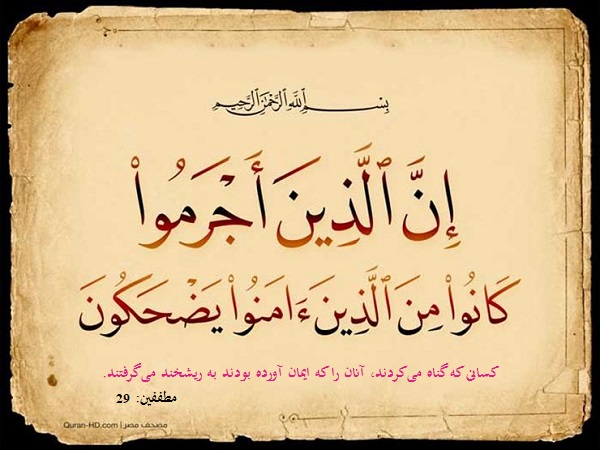 بِسْمِ ٱللَّهِ ٱلرَّحْمَٰنِ ٱلرَّحِيمِ
إِنَّ ٱلَّذِينَ أَجْرَمُوا۟
كَانُوا۟ مِنَ ٱلَّذِينَ ءَامَنُوا۟ يَضْحَكُونَ
کسانی که گناه می‌کردند، آنان را که ایمان آورده بودند به ریشخند می‌گرفتند.
مطففین: 29
Quran-HD.com | مصحف مصر